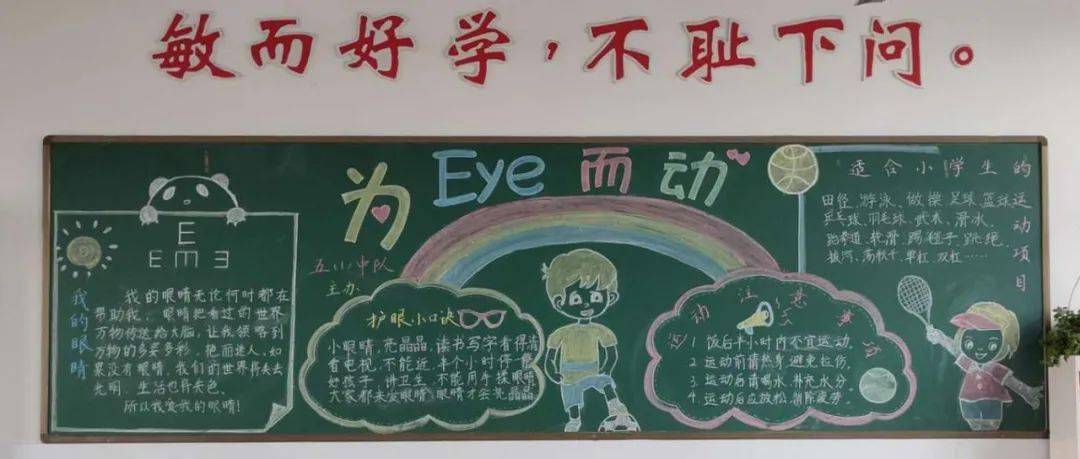 敏而好学，不耻下问。
为Eye而动
E
E m ヨ
我的眼睛
我的眼睛无论何时都在
帮助我，眼睛把看过的世界
万物传送给大脑，让我领略到
万物的多姿多彩，艳而迷人，如
果没有眼睛，我们的世界将失去
光明，生活也将失色。
所以我爱我的眼睛！
五(1)中队
主办
护眼小口诀
小眼睛，亮晶晶，读书写字看得清
看电视，不能近，半个小时停一停
好孩子，讲卫生，不能用手揉眼睛
大家都来爱眼睛，眼睛才会亮晶晶
运动注意事项
1 饭后半小时内不宜运动。
2. 运动前请热身，避免拉伤。
3. 运动后请喝水，补充水分。
4. 运动后应放松，消除疲劳。
适合小学生的
运动项目
田径、游泳、做操、足球、篮球
乒乓球、羽毛球、武术、滑冰、
跆拳道、轮滑、踢毽子、跳绳、
拔河、荡秋千、单杠、双杠……